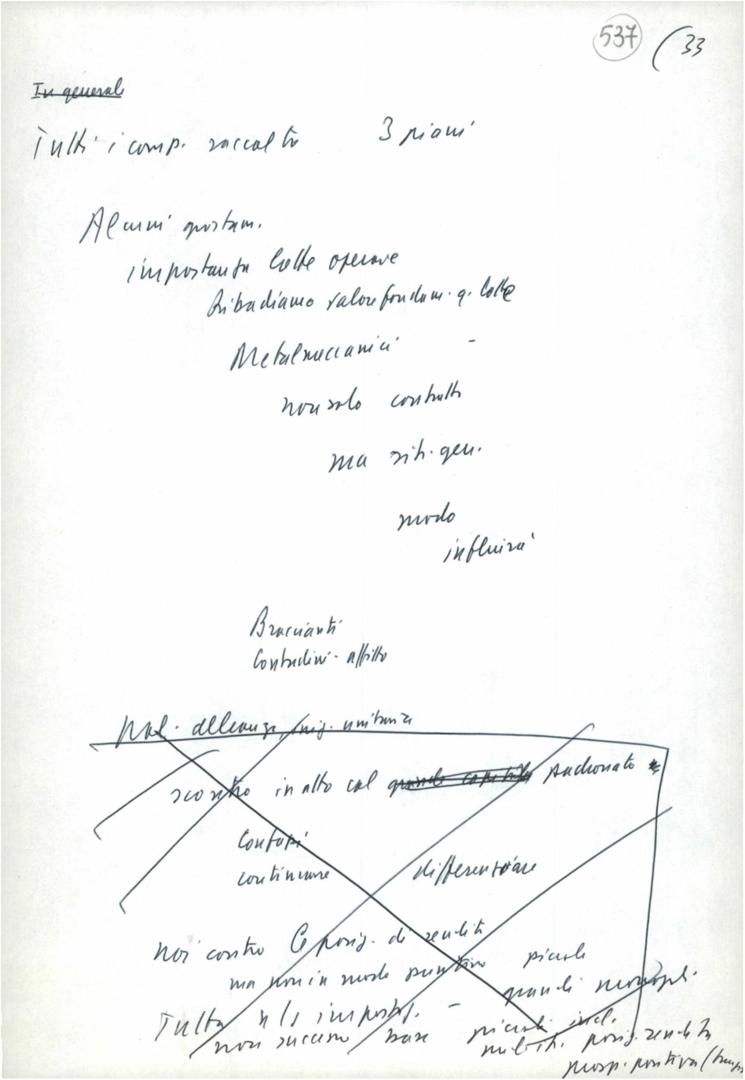 537 (33
In generale
Tutti i comp. raccolto 3 piani
Alcuni spostam.
importanza lotte operaie
Ribadiamo valore fondam. q. lotte
Metalmeccanici -
non solo contratti
ma sit. gen.
modo
influirà
Braccianti
Contadini - affitto
Pol. alleanze unitaria
scontro in atto col grande capitale padronato *
Confapi
continuare differenziare
noi contro posiz. di rendita
ma non in modo punitivo piccole
grandi monopol.
Tutta impostaz. -
non successo base piccoli incl.
posiz. rendita
prosp. positiva